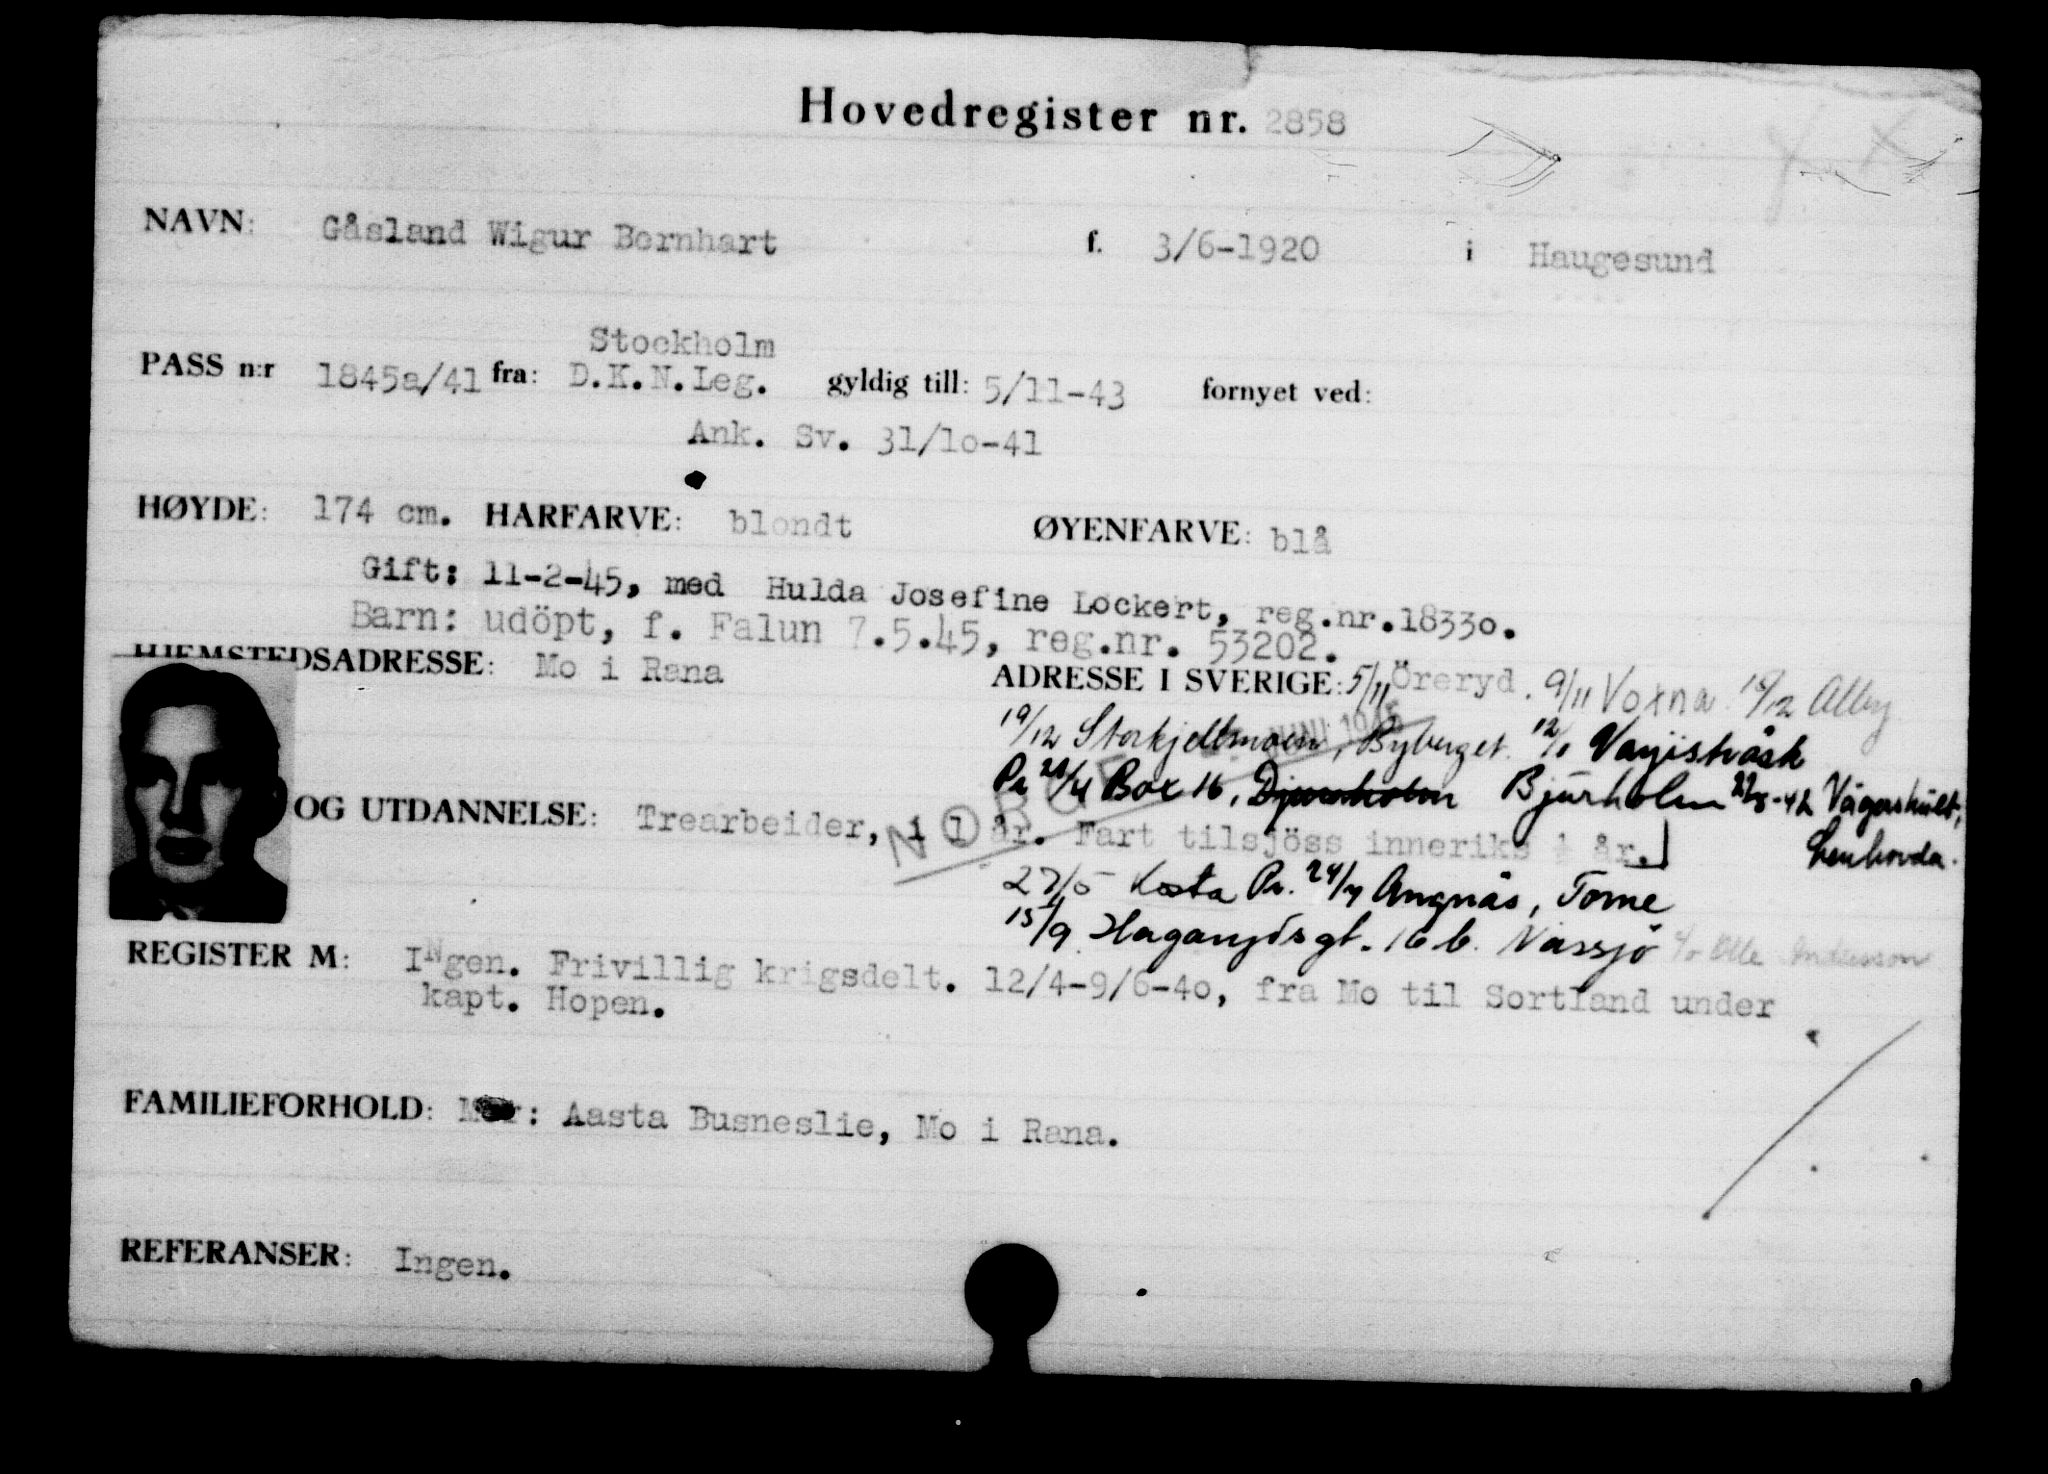 Hovedregister nr. 2858
NAVN: Gåsland Wigur Bernhart f. 3/6-1920 i Haugesund
Stockholm
PASS n:r 1845a/41 fra: D.K.N.Leg. gyldig till: 5/11-43 fornyet ved:
Ank. Sv. 31/10-41
HØYDE: 174 cm. HARFARVE: blondt ØYENFARVE: blå
Gift: 11-2-45, med Hulda Josefine Lockert, reg.nr.18330.
Barn: udöpt, f. Falun 7.5.45, reg.nr. 53202.
HJEMSTEDSADRESSE: Mo i Rana ADRESSE I SVERIGE: 5/11 Öreryd. 9/11 Voxna 18/12 Alby
19/12 Storkjellmoen, Byberget. 12/1 Vajisträsk
JUNI 1945
Pr 28/4 Box 16, Djurholm Bjurholm 22/8-42 Vägershult,
NORGE
OG UTDANNELSE: Trearbeider, i 1 år. Fart tilsjöss inneriks ½ år. Lenhovda.
27/5 Kosta Pr. 24/7 Angnäs, Torne
15/9 16 b. Nässjö c/o Olle Andersson
REGISTER M: INgen. Frivillig krigsdelt. 12/4-9/6-40, fra Mo til Sortland under
kapt. Hopen.
FAMILIEFORHOLD: Mor: Aasta Busneslie, Mo i Rana.
REFERANSER: Ingen.